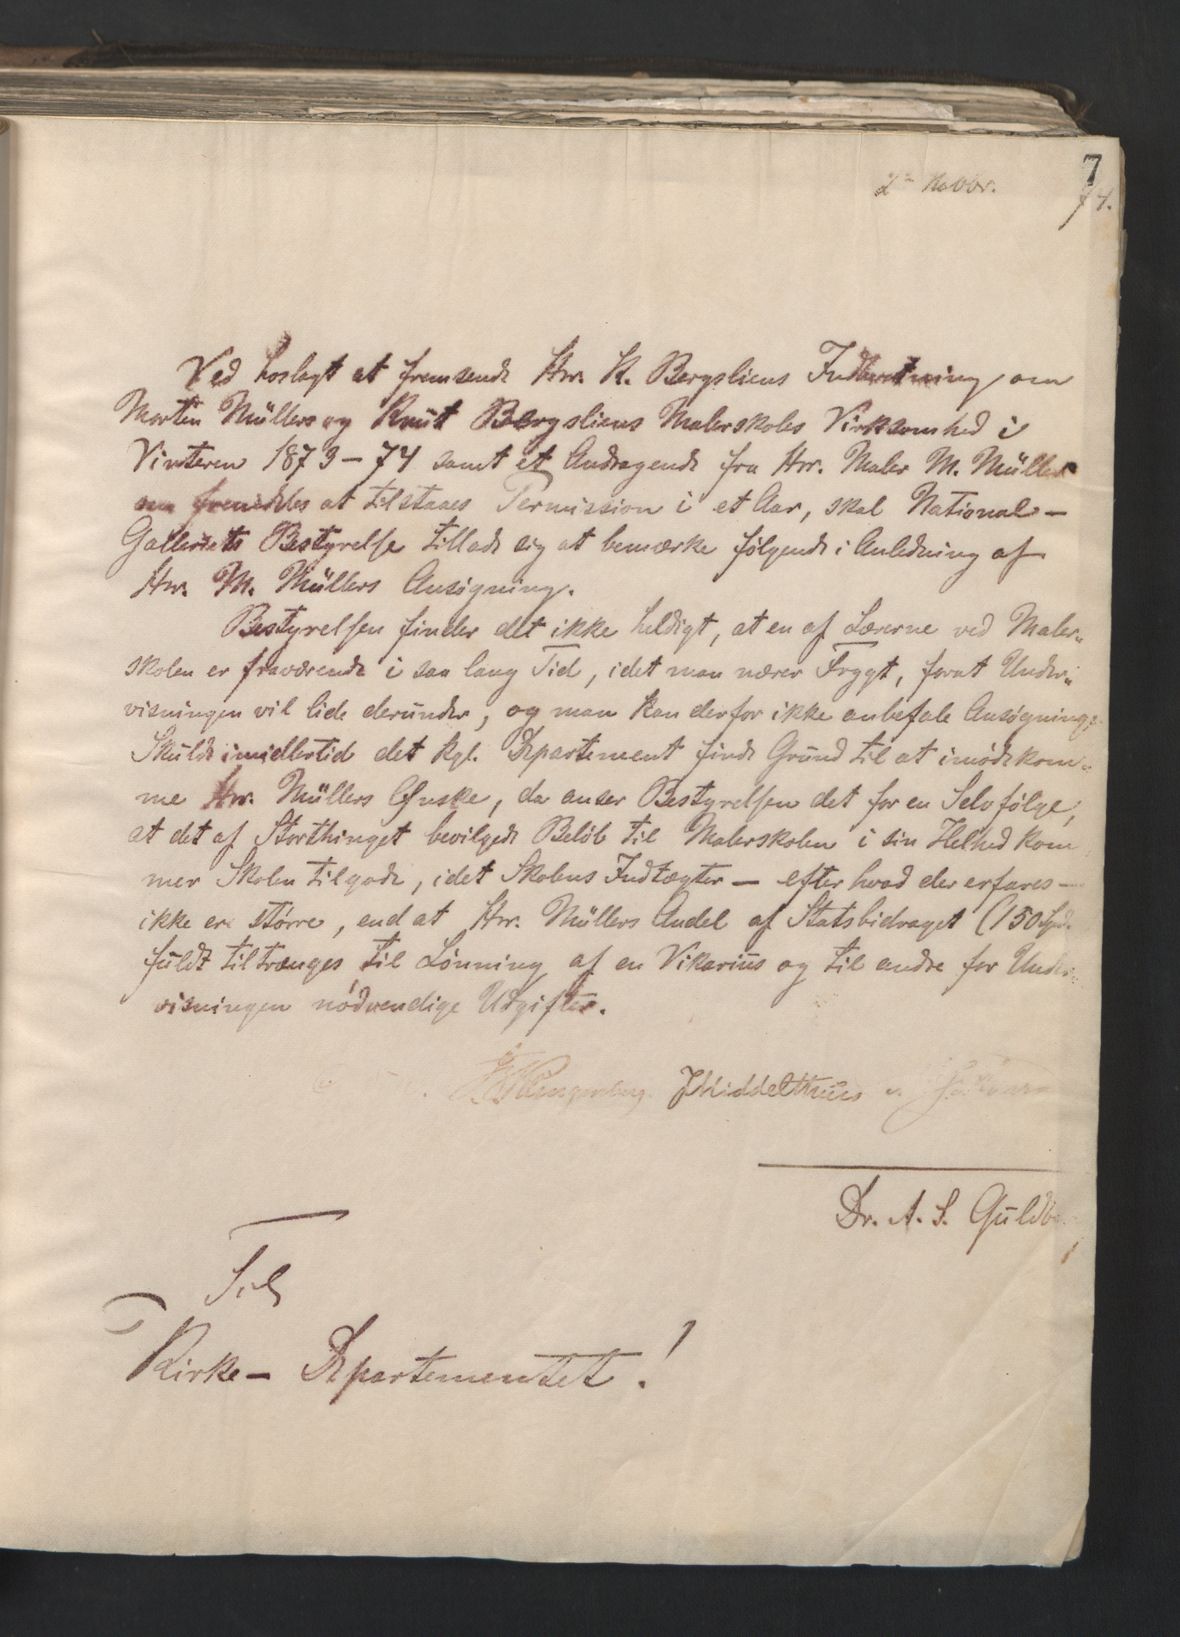 7
2den Novbr. 74.
Ved hoslagt at fremsende Hrr. K. Bergsliens Indberetning om
Morten Müllers og Knut Bergsliens Malerskoles Virksomhed i
Vinteren 1873-74 samt et Andragende fra Hrr. Maler M. Müller
om fremdeles at tilstaaes Permission i et Aar, skal National-
Galleriets Bestyrelse tillade sig at bemærke følgende i Anledning af
Hrr. M. Müllers Ansøgning.
Bestyrelsen finder det ikke heldigt, at en af Lærerne ved Maler-
skolen er fraværende i saa lang Tid, idet man nærer Frygt, forat Under-
visningen vil lide derunder, og man kan derfor ikke anbefale Ansøgning:
Skulde imidlertid det kgl. Departement finde Grund til at imødekom-
me Hrr. Müllers Ønske, da anser Bestyrelsen det for en Selvfølge,
at det af Storthinget bevilgede Beløb til Malerskolen i sin Helhed kom
mer Skolen tilgode, idet Skolens Indtægter - efter hvad der erfares -
ikke er større, end at Hrr. Müllers Andel af Statsbidraget (150 Spd.
fuldt tiltrænges til Lønning af en Vikarius og til andre for Under-
visningen nødvendige Udgifter.
Klingenberg. J Middelthun
Dr. A. S. Guldb
Til
Kirke-Departementet!